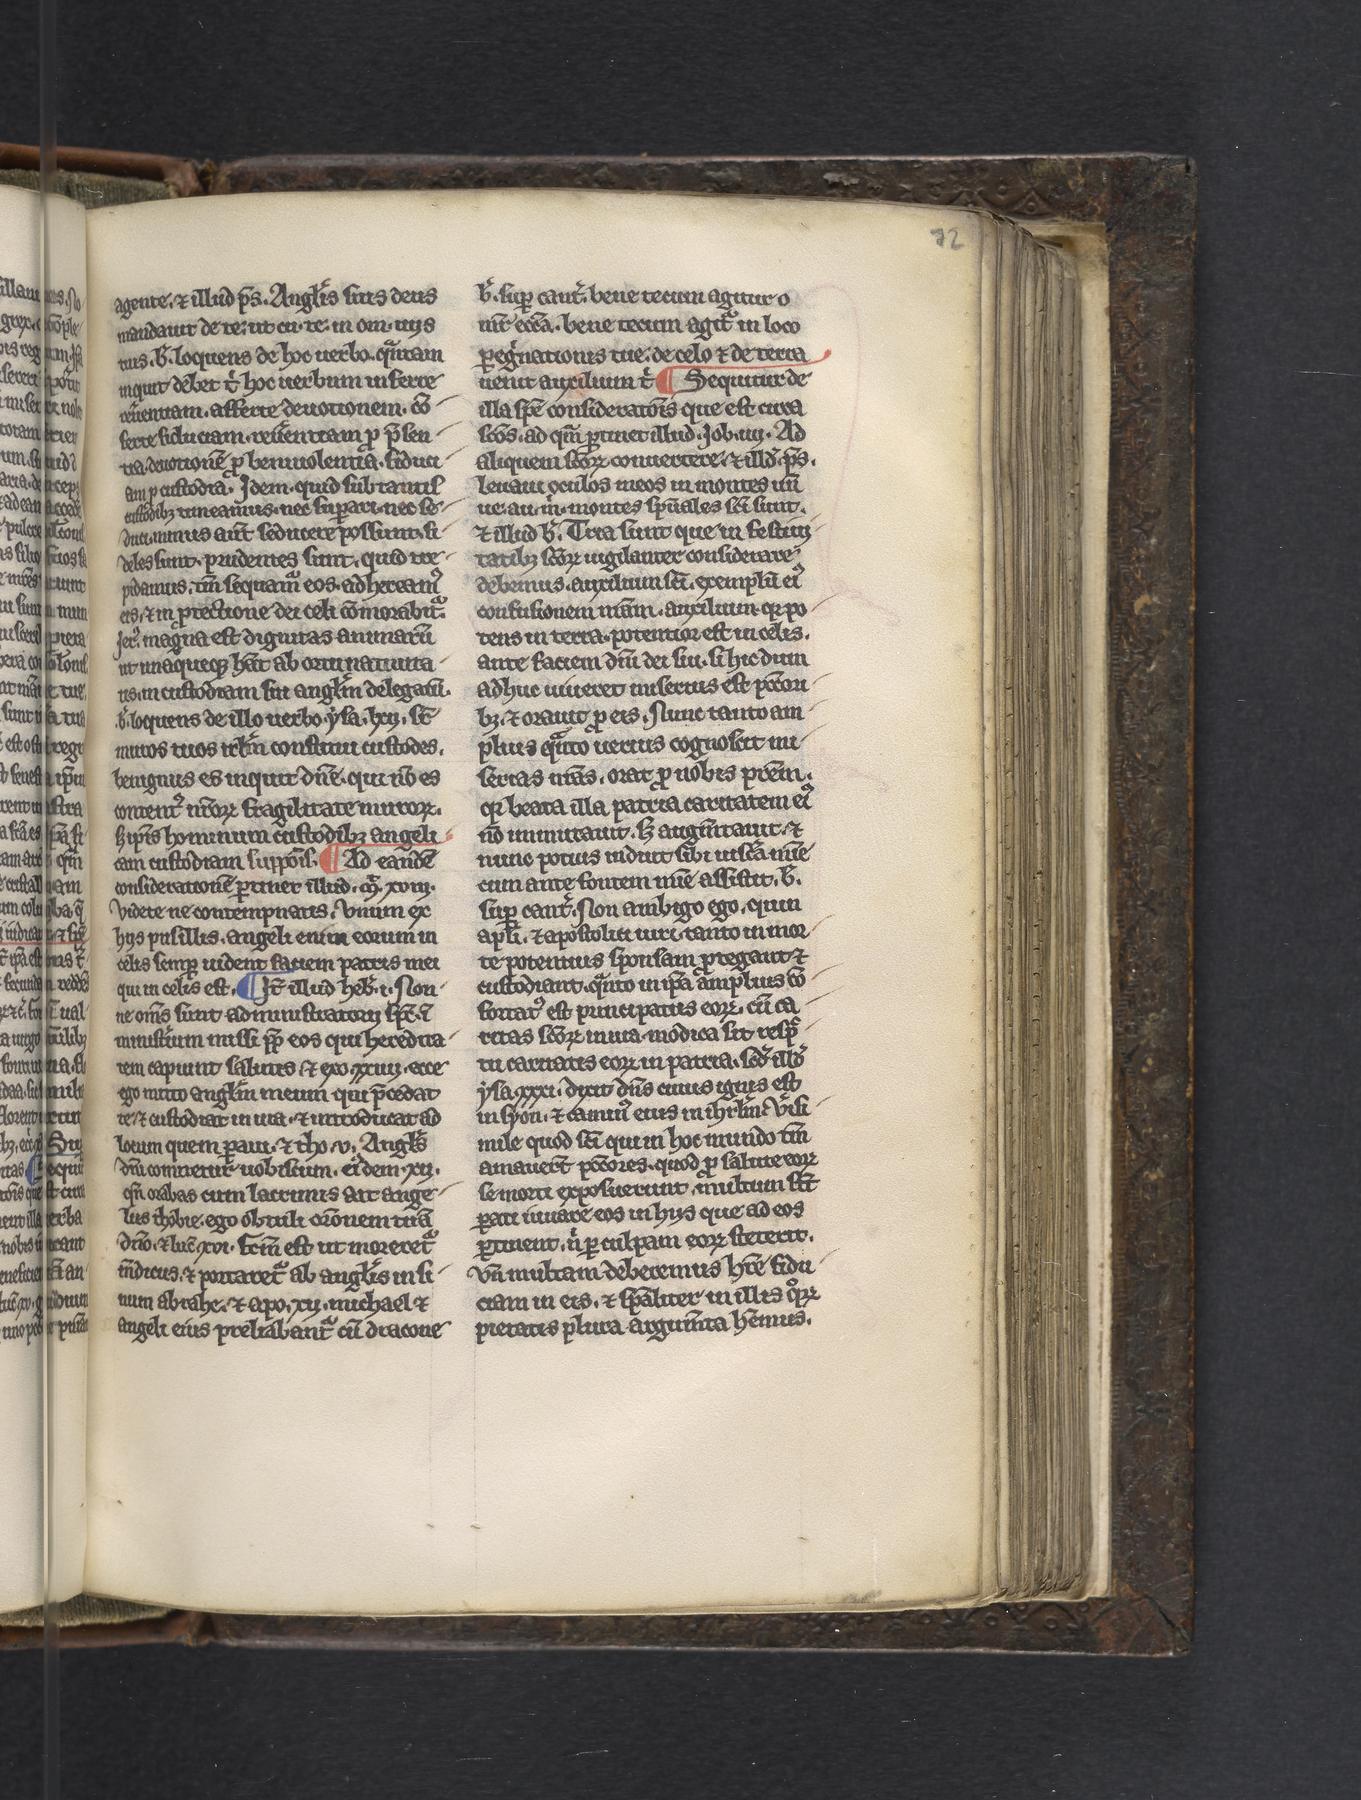 72
agente. ⁊ illud p̄s. Angl̄is suis deus
mandauit de te: ut cu. te. in om. uijs
tuis. b̄. loquens de hoc uerbo. quātam
inquit debet t̄ hoc uerbum inferre
reuerentiam. afferre deuotionem. cō
ferre fiduciam. reuerentiam ꝓ p̄sen
tia. deuotionē ꝓ beniuolentia. fiduci
am ꝓ custodia. Idem. quid sub tantis
custodibꝫ timeamus. nec suꝑari. nec se
duci. minus aut̄ seducere possunt. fi
deles sunt. prudentes sunt. quid tre
pidamus. tm̄ sequam̄ eos. adhereamꝰ
eis. ⁊ in ꝓtectione dei celi cōmorabit̄.
Ier̄. magna est dignitas animarū
ut unaqueqꝫ hēat ab ortu natiuita
tis. in custodiam sui angl̄m delegatū.
b̄. loquens de illo uerbo. ysa. lxij. sr̄
muros tuos ir̄lm constitui custodes.
benignus es inquit dn̄e. qui nō es
contentꝰ nr̄orꝝ fragilitate murorꝝ.
sꝫ ip̄is hominum custodibꝫ angeli
cam custodiam suppōis. ¶ Ad eandē
considerationē ꝑtinet illud. m̄. xviij.
Videte ne contempnatis. vnum ex
hijs pusillis. angeli enim eorum in
celis semꝑ uident faciem patris mei
qui in celis est. ¶ It̄ illud heb̄. i. Non
ne om̄s sunt administratorij sp̄c. ī
ministīum missi ꝓp̄ eos qui heredita
tem capiunt salutis. ⁊ exo. xxiij. ecce
ego mitto angl̄m meum qui p̄cedat
te. ⁊ custodiat in uia. ⁊ introducat ad
locum quem ꝑaui. ⁊ tho. v. Angl̄s
dn̄i comitetur uobiscum. eīdem. xij.
qn̄ orabas cum lacrimis ait ange
lus thobie. ego obtuli or̄onem tuā
dn̄o. ⁊ luc̄. xvi. fc̄m est ut moreret̄
m̄dicus. ⁊ portaret̄ ab angl̄is in si
num abrahe. ⁊ apo. xij. michael ⁊
angeli eius preliabant̄ cū dracone
b̄. suꝑ cant̄. bene tecum agitur o
mr̄ ecc̄a. bene tecum agit̄ in loco
ꝑeḡnationis tue. de celo ⁊ de terra
uenit auxilium t̄ ¶ Sequitur de
illa sp̄e considerat̄ois que est circa
sc̄os. ad qm̄ ꝑtinet illud. Job. iij. Ad
aliquem sc̄orꝝ conuertere. ⁊ illd̄. p̄s.
Leuaui oculos meos in montes un̄
ue. au. m̄. montes sp̄uales sc̄i sunt.
⁊ illud b̄. Tria sunt que in festiui
tatibꝫ sc̄orꝝ uigilanter considerare
debemus. auxilium sc̄i. exemplū eiꝰ
confusionem nr̄am. auxilium. qꝛ po
tens in terra. potentior est in celis.
ante faciem dn̄i dei sui. si hic dum
adhuc uiueret misertus est pc̄cori
bꝫ. ⁊ orauit ꝓ eis. Nunc tanto am
plius quāto uerius cognoscit mi
serias nr̄as. orat ꝓ nobis pr̄em.
qꝛ beata illa patria caritatem eiꝰ
nō immutauit. sꝫ augm̄tauit. ⁊
nunc potius induit sibi uisc̄a mīe
cum ante fontem mīe assistit. b̄.
suꝑ cant̄. Non ambigo ego. quin
apl̄i. ⁊ apostolici uiri. tanto in mor
te potentius sponsam ꝓtegant ⁊
custodiant. quāto in ip̄a amplius cō
fortatꝰ est principatus eorꝝ. cū ca
ritas sc̄orꝝ in uia. modica sit resp̄c
tu caritatis eorꝝ in patria. sc̄dm illd̄
ysa. xxxi. dixit dn̄s cuius ignis est
in syon. ⁊ caminꝰ eius in ihrl̄m. V̄isi
mile quod sc̄i qui in hoc mundo tm̄
amauer̄t pc̄cores. quod ꝓ salute eorꝝ
se morti exposuerunt. multum st̄
ꝑati iuuare eos in hijs que ad eos
ꝑtinent. n̄ ꝑ culpam eorꝝ steterit.
vn̄ multam deberemus hr̄e fidu
ciam in eis. ⁊ sp̄aliter in illis qꝰrꝝ
pietatis plura argum̄ta hēmus.